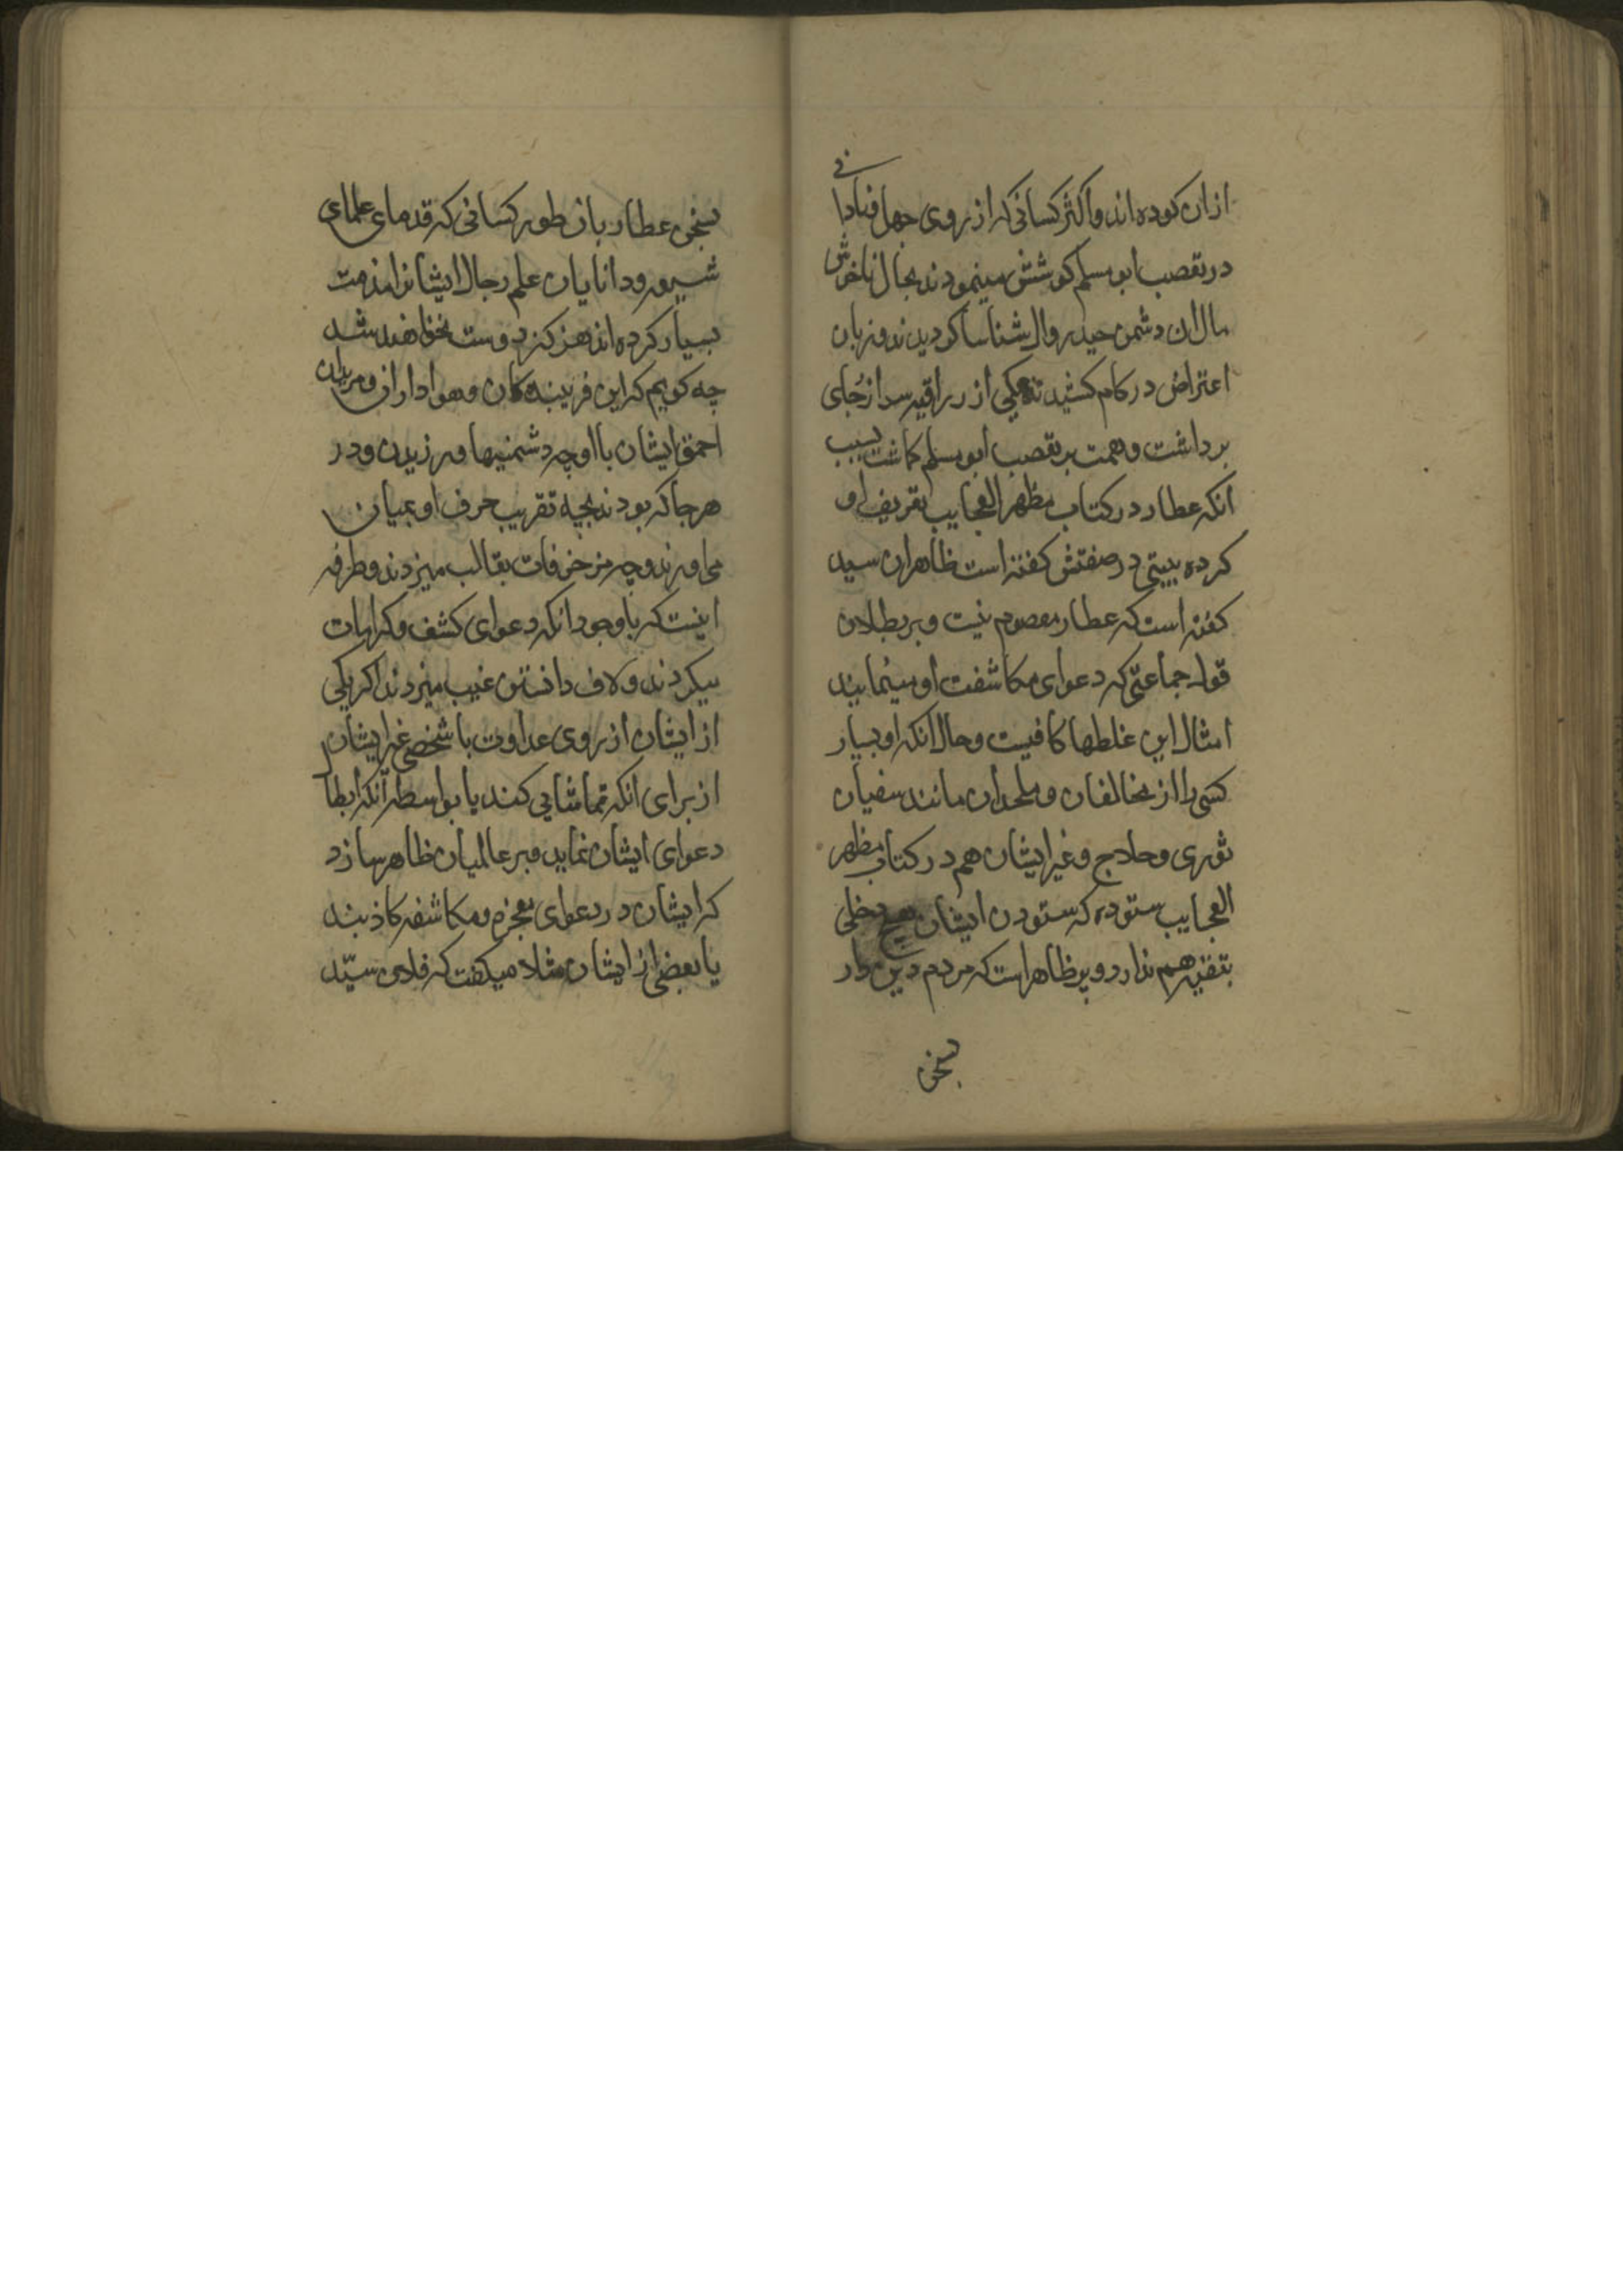 ازان کرده اند و اکثر کسانی که از روی جهل و نادانی
در تعصب ابو مسلم کوشش مینمودند بحال ناخوش
مال ان دشمن حیدر و ال شناسا کردیدند و زبان
اعتراض در کام کشیدند یکی از سر از جای
برداشت و همت بر تعصب ابو مسلم کماشت بسبب
انکه عطار در کتاب مظهر العجایب تعریف او
کرده بیتی در صفتش کفته است ظاهرا ان سید
کفته است که عطار معصوم نیست و بر بطلان
قول جماعتی که دعوای مکاشفت او مینمایند
امثال این غلطها کافیست و حال انکه او بسیار
کسی را از مخالفان و ملحدان مانند سفیان
ثوری و حلاج و غیر ایشان هم در کتاب مظهر
العجایب ستوده که ستودن ایشان هیچ دخلی
بتقیه هم ندارد و پر ظاهر است که مردم دین دار
بسخن
بسخن عطار بان طور کسانی که قدمای علمای
شیعه و دانایان علم رجال ایشانرا مذمت
بسیار کرده اند هرکز دوست نخواهند شد
چه کویم که این فریبندکان و هواداران و مریدان
احمق ایشان با او چه دشمنیها ورزیدند و در
هر جا که بودند بچه تقریب حرف او بمیان
می اورند و چه مزخرفات بقالب میزدند و طرفه
اینست که با وجود انکه دعوای کشف و کرامات
میکردند و لاف دانستن غیب میزدند اکر یکی
از ایشان از روی عداوت با شخصی غیر ایشان
از برای انکه تماشایی کند یا بواسطه آنکه ابطال
دعوای ایشان نماید و بر عالمیان ظاهر سازد
که ایشان در دعوای معجزه و مکاشفه کاذبند
یا بعضی از ایشان مثلا میکفت که فلان سیّد